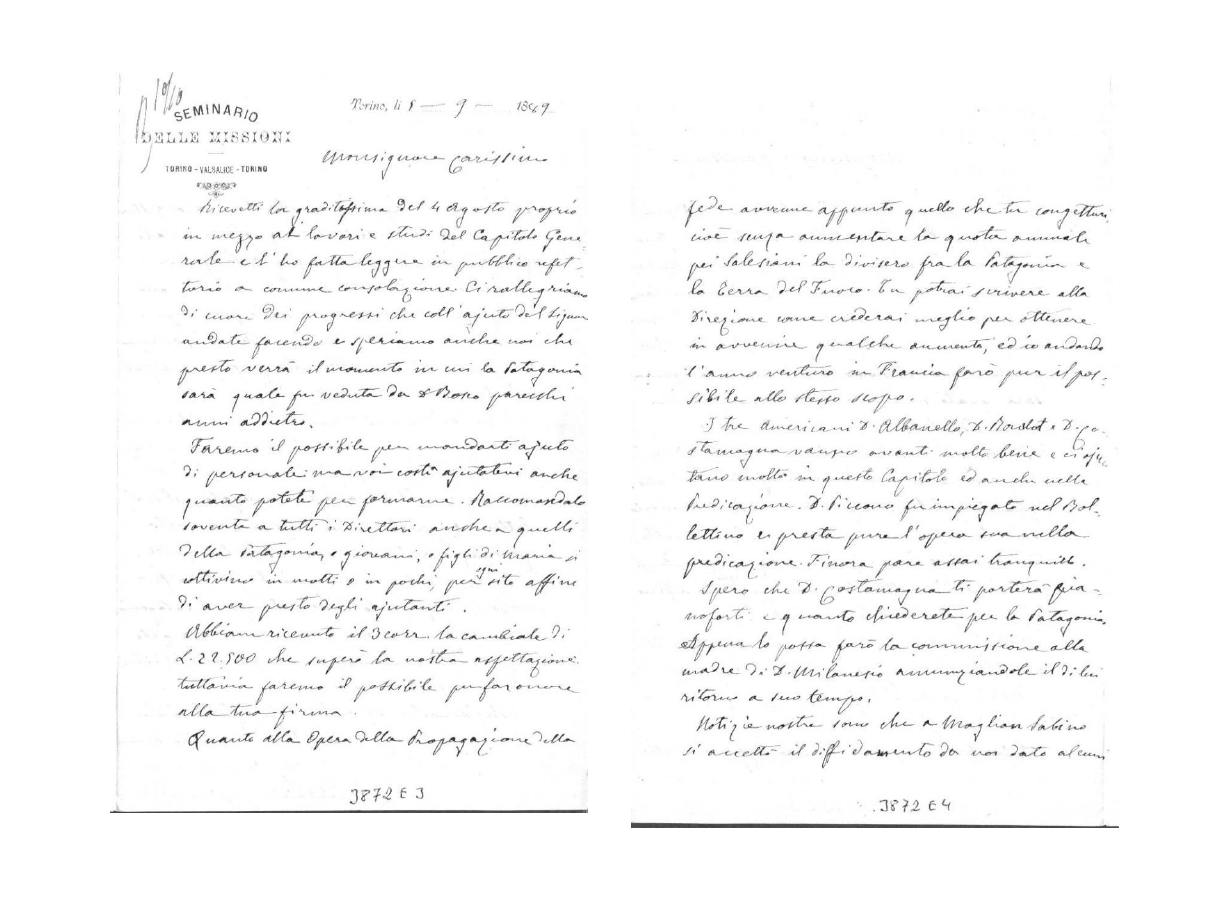 SEMINARIO
DELLE MISSIONI
TORINO - VALSALICE - TORINO
Torino, li 8 — 9 — 1889
Monsignore Carissimo
Ricevetti la graditissima del 4 Agosto proprio
in mezzo ai lavori e studi del Capitolo Gene-
rale e l'ho fatta leggere in pubblico refet-
torio a comune consolazione. Ci rallegriamo
di cuore dei progressi che coll'ajuto del Signor
andate facendo e speriamo anche noi che
presto verrà il momento in cui la Patagonia
sarà quale fu veduta da D Bosco parecchi
anni addietro.
Faremo il possibile per mandarti ajuto
di personale ma voi costì ajutatevi anche
quanto potete per formarne. Raccomandalo
sovente a tutti i Direttori anche a quelli
della Patagonia, o giovani, o figli di Maria si
coltivino in molti o in pochi, per ogni sito affine
di aver presto degli ajutanti.
Abbiam ricevuto il 3 corr. la cambiale di
L. 22.500 che superò la nostra aspettazione.
tuttavia faremo il possibile per far onore
alla tua firma.
Quanto alla Opera della Propagazione della
3872 E 3
fede avvenne appunto quello che tu congetturi
cioè senza aumentare la quota annuale
pei Salesiani la divisero fra la Patagonia e
la Terra del Fuoco. Tu potrai scrivere alla
Direzione come crederai meglio per ottenere
in avvenire qualche aumento, ed io andando
l'anno venturo in Francia farò pur il pos-
sibile allo stesso scopo.
I tre Americani D. Albanello, D. e D. Co-
stamagna vanno avanti molto bene e ci aju-
tano molto in questo Capitolo ed anche nella
Predicazione. D. Piccono fu impiegato nel Bol-
lettino e presta pure l'opera sua nella
predicazione. Finora pare assai tranquillo.
Spero che D. Costamagna ti porterà pia-
noforti e quanto chiederete per la Patagonia.
Appena lo possa farò la commissione alla
madre di D. Milanesio annunziandole il di lui
ritorno a suo tempo.
Notizie nostre sono che a Maglian Sabino
si accettò il diffidamento da noi dato alcuni
3872 E 4